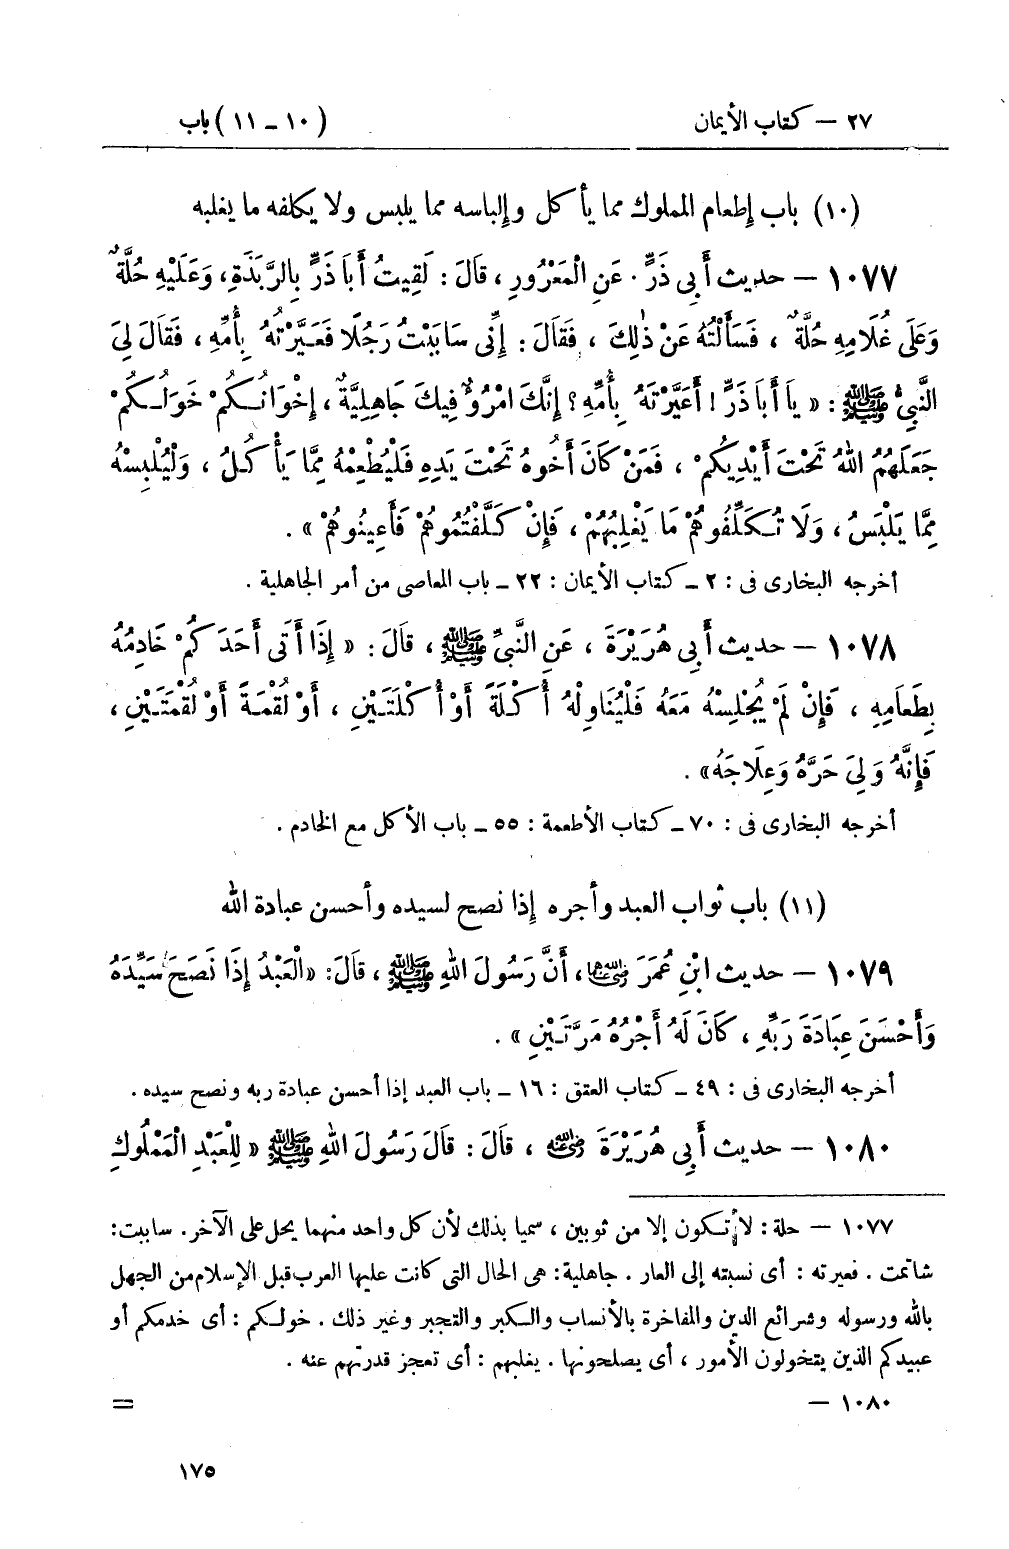 ٢٧ — كتاب الأيمان (١٠ ـ ١١) باب
(١٠) باب إطعام المملوك مما يأكل وإلباسه مما يلبس ولا يكلفه ما يغلبه
١٠٧٧ — حديث أَبِي ذَرٍّ. عَنِ الْمَعْرُورِ، قَالَ: لَقِيتُ أَبَا ذَرٍّ بِالرَّبَذَةِ، وَعَلَيْهِ حُلَّةٌ
وَعَلَى غُلَامِهِ حُلَّةٌ، فَسَأَلْتُهُ عَنْ ذٰلِكَ، فَقَالَ: إِنِّي سَابَبْتُ رَجُلًا فَعَيَّرْتُهُ بِأُمِّهِ، فَقَالَ لِيَ
النَّبِيُّ ﷺ: «يَا أَبَا ذَرٍّ! أَعَيَّرْتَهُ بِأُمِّهِ؟ إِنَّكَ امْرُؤٌ فِيكَ جَاهِلِيَّةٌ، إِخْوَانُكُمْ خَوَلُكُمْ
جَعَلَهُمُ اللهُ تَحْتَ أَيْدِيكُمْ، فَمَنْ كَانَ أَخُوهُ تَحْتَ يَدِهِ فَلْيُطْعِمْهُ مِمَّا يَأْكُلُ، وَلْيُلْبِسْهُ
مِمَّا يَلْبَسُ، وَلَا تُكَلِّفُوهُمْ مَا يَغْلِبُهُمْ، فَإِنْ كَلَّفْتُمُوهُمْ فَأَعِينُوهُمْ».
أخرجه البخارى فى: ٢ ـ كتاب الأيمان: ٢٢ ـ باب المعاصى من أمر الجاهلية.
١٠٧٨ — حديث أَبِي هُرَيْرَةَ، عَنِ النَّبِيِّ ﷺ، قَالَ: «إِذَا أَتَى أَحَدَكُمْ خَادِمُهُ
بِطَعَامِهِ، فَإِنْ لَمْ يُجْلِسْهُ مَعَهُ فَلْيُنَاوِلْهُ أُكْلَةً أَوْ أُكْلَتَيْنِ، أَوْ لُقْمَةً أَوْ لُقْمَتَيْنِ،
فَإِنَّهُ وَلِيَ حَرَّهُ وَعِلَاجَهُ».
أخرجه البخارى فى: ٧٠ ـ كتاب الأطعمة: ٥٥ ـ باب الأكل مع الخادم.
(١١) باب ثواب العبد وأجره إذا نصح لسيده وأحسن عبادة الله
١٠٧٩ — حديث ابْنِ عُمَرَ رضي الله عنهما، أَنَّ رَسُولَ اللهِ ﷺ، قَالَ: «الْعَبْدُ إِذَا نَصَحَ سَيِّدَهُ
وَأَحْسَنَ عِبَادَةَ رَبِّهِ، كَانَ لَهُ أَجْرُهُ مَرَّتَيْنِ».
أخرجه البخارى فى: ٤٩ ـ كتاب العتق: ١٦ ـ باب العبد إذا أحسن عبادة ربه ونصح سيده.
١٠٨٠ — حديث أَبِي هُرَيْرَةَ رضي الله عنه، قَالَ: قَالَ رَسُولُ اللهِ ﷺ «لِلْعَبْدِ الْمَمْلُوكِ
١٠٧٧ — حلة: لا تكون إلا من ثوبين، سميا بذلك لأن كل واحد منهما يحل على الآخر. ساببت:
شاتمت. فعيرته: أى نسبته إلى العار. جاهلية: هى الحال التى كانت عليها العرب قبل الإسلام من الجهل
بالله ورسوله وشرائع الدين والمفاخرة بالأنساب والكبر والتجبر وغير ذلك. خولكم: أى خدمكم أو
عبيدكم الذين يتخولون الأمور، أى يصلحونها. يغلبهم: أى تعجز قدرتهم عنه.
١٠٨٠ — =
١٧٥